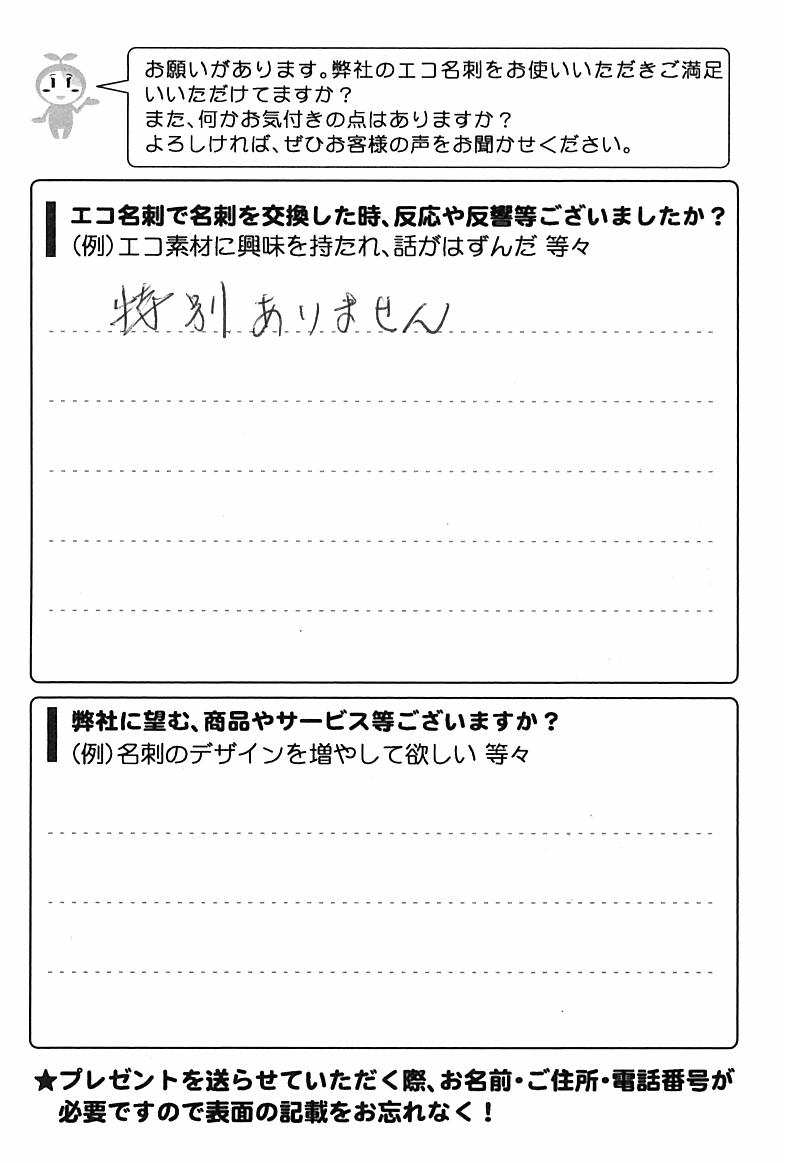 お願いがあります。弊社のエコ名刺をお使いいただきご満足
いいただけてますか？
また、何かお気付きの点はありますか？
よろしければ、ぜひお客様の声をお聞かせください。
エコ名刺で名刺を交換した時、反応や反響等ございましたか？
（例）エコ素材に興味を持たれ、話がはずんだ 等々
特別ありません
弊社に望む、商品やサービス等ございますか？
（例）名刺のデザインを増やして欲しい 等々
★プレゼントを送らせていただく際、お名前・ご住所・電話番号が
必要ですので表面の記載をお忘れなく！